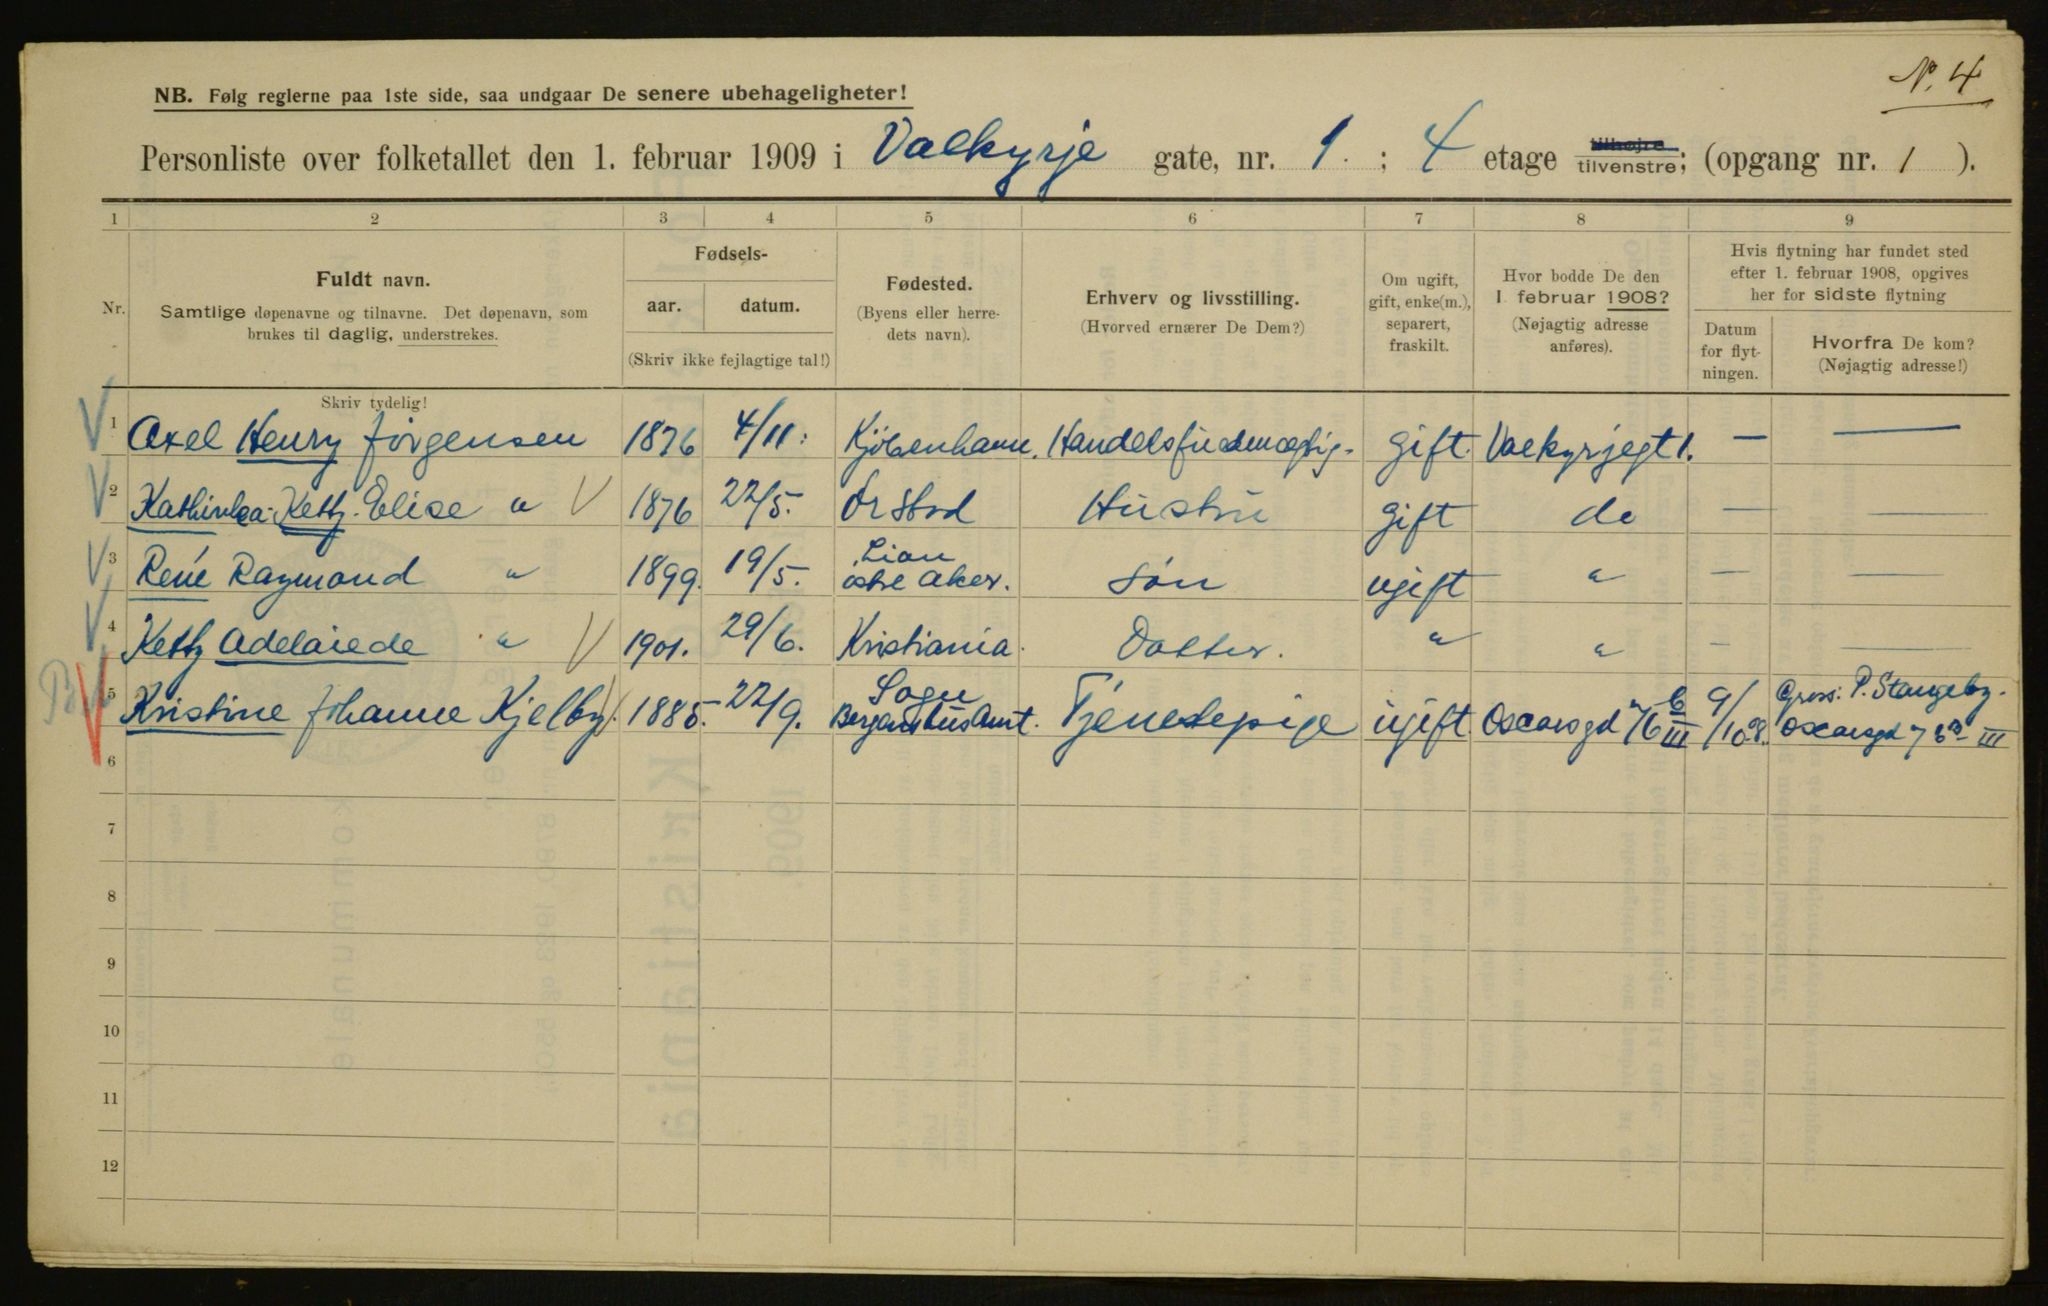 N. 4
NB. Følg reglerne paa 1ste side, saa undgaar De senere ubehageligheter!
Personliste over folketallet den 1. februar 1909 i Valkyrje gate, nr. 1. ; 4 etage tilhøjre tilvenstre; (opgang nr. 1 ).
1 2 3 4 5 6 7 8 9
Nr.
Fuldt navn.
Samtlige døpenavne og tilnavne. Det døpenavn, som
brukes til daglig, understrekes.
Skriv tydelig!
Fødsels-
aar. datum.
(Skriv ikke fejlagtige tal!)
Fødested.
(Byens eller herre-
dets navn).
Erhverv og livsstilling.
(Hvorved ernærer De Dem?)
Om ugift,
gift, enke(m.),
separert,
fraskilt.
Hvor bodde De den
1. februar 1908?
(Nøjagtig adresse
anføres).
Hvis flytning har fundet sted
efter 1. februar 1908, opgives
her for sidste flytning
Datum
for flyt-
ningen.
Hvorfra De kom?
(Nøjagtig adresse!)
1 Axel Henry Jörgensen 1876 4/11. Kjöbenhavn. gift. Valkyrjegt 1. — —
2 Kathinka Ketty Elise " 1876 22/5. Örsted Hustru gift do — —
3 René Raymond " 1899. 19/5. Lian östre Aker. Sön ugift " — —
4 Ketty Adelaiede " 1901. 29/6. Kristiania. Datter. " " — —
5 Kristine Johanne Kjelby. 1885. 22/9. Sogn Bergenshus Amt. Tjenestepige ugift Oscarsgd 76 b III 9/10 08. Gross: P. Stangeby. Oscarsgd 76 b III
6
7
8
9
10
11
12